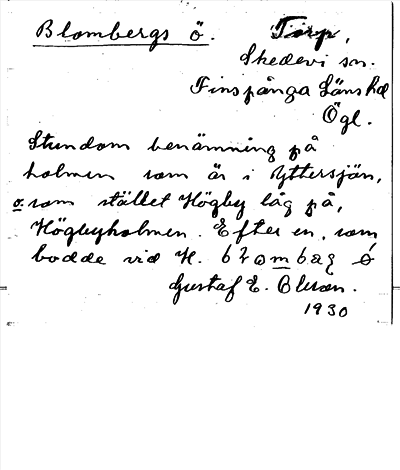 Blombergs ö. Torp,
Skedevi sn.
Finspånga Länshd
Ögl.
Stundom benämning på
holmen som är i Yttersjön,
o. som stället Högby låg på,
Högbyholmen. Efter en, som
bodde vid H.
Gustaf E. Bluson.
1930